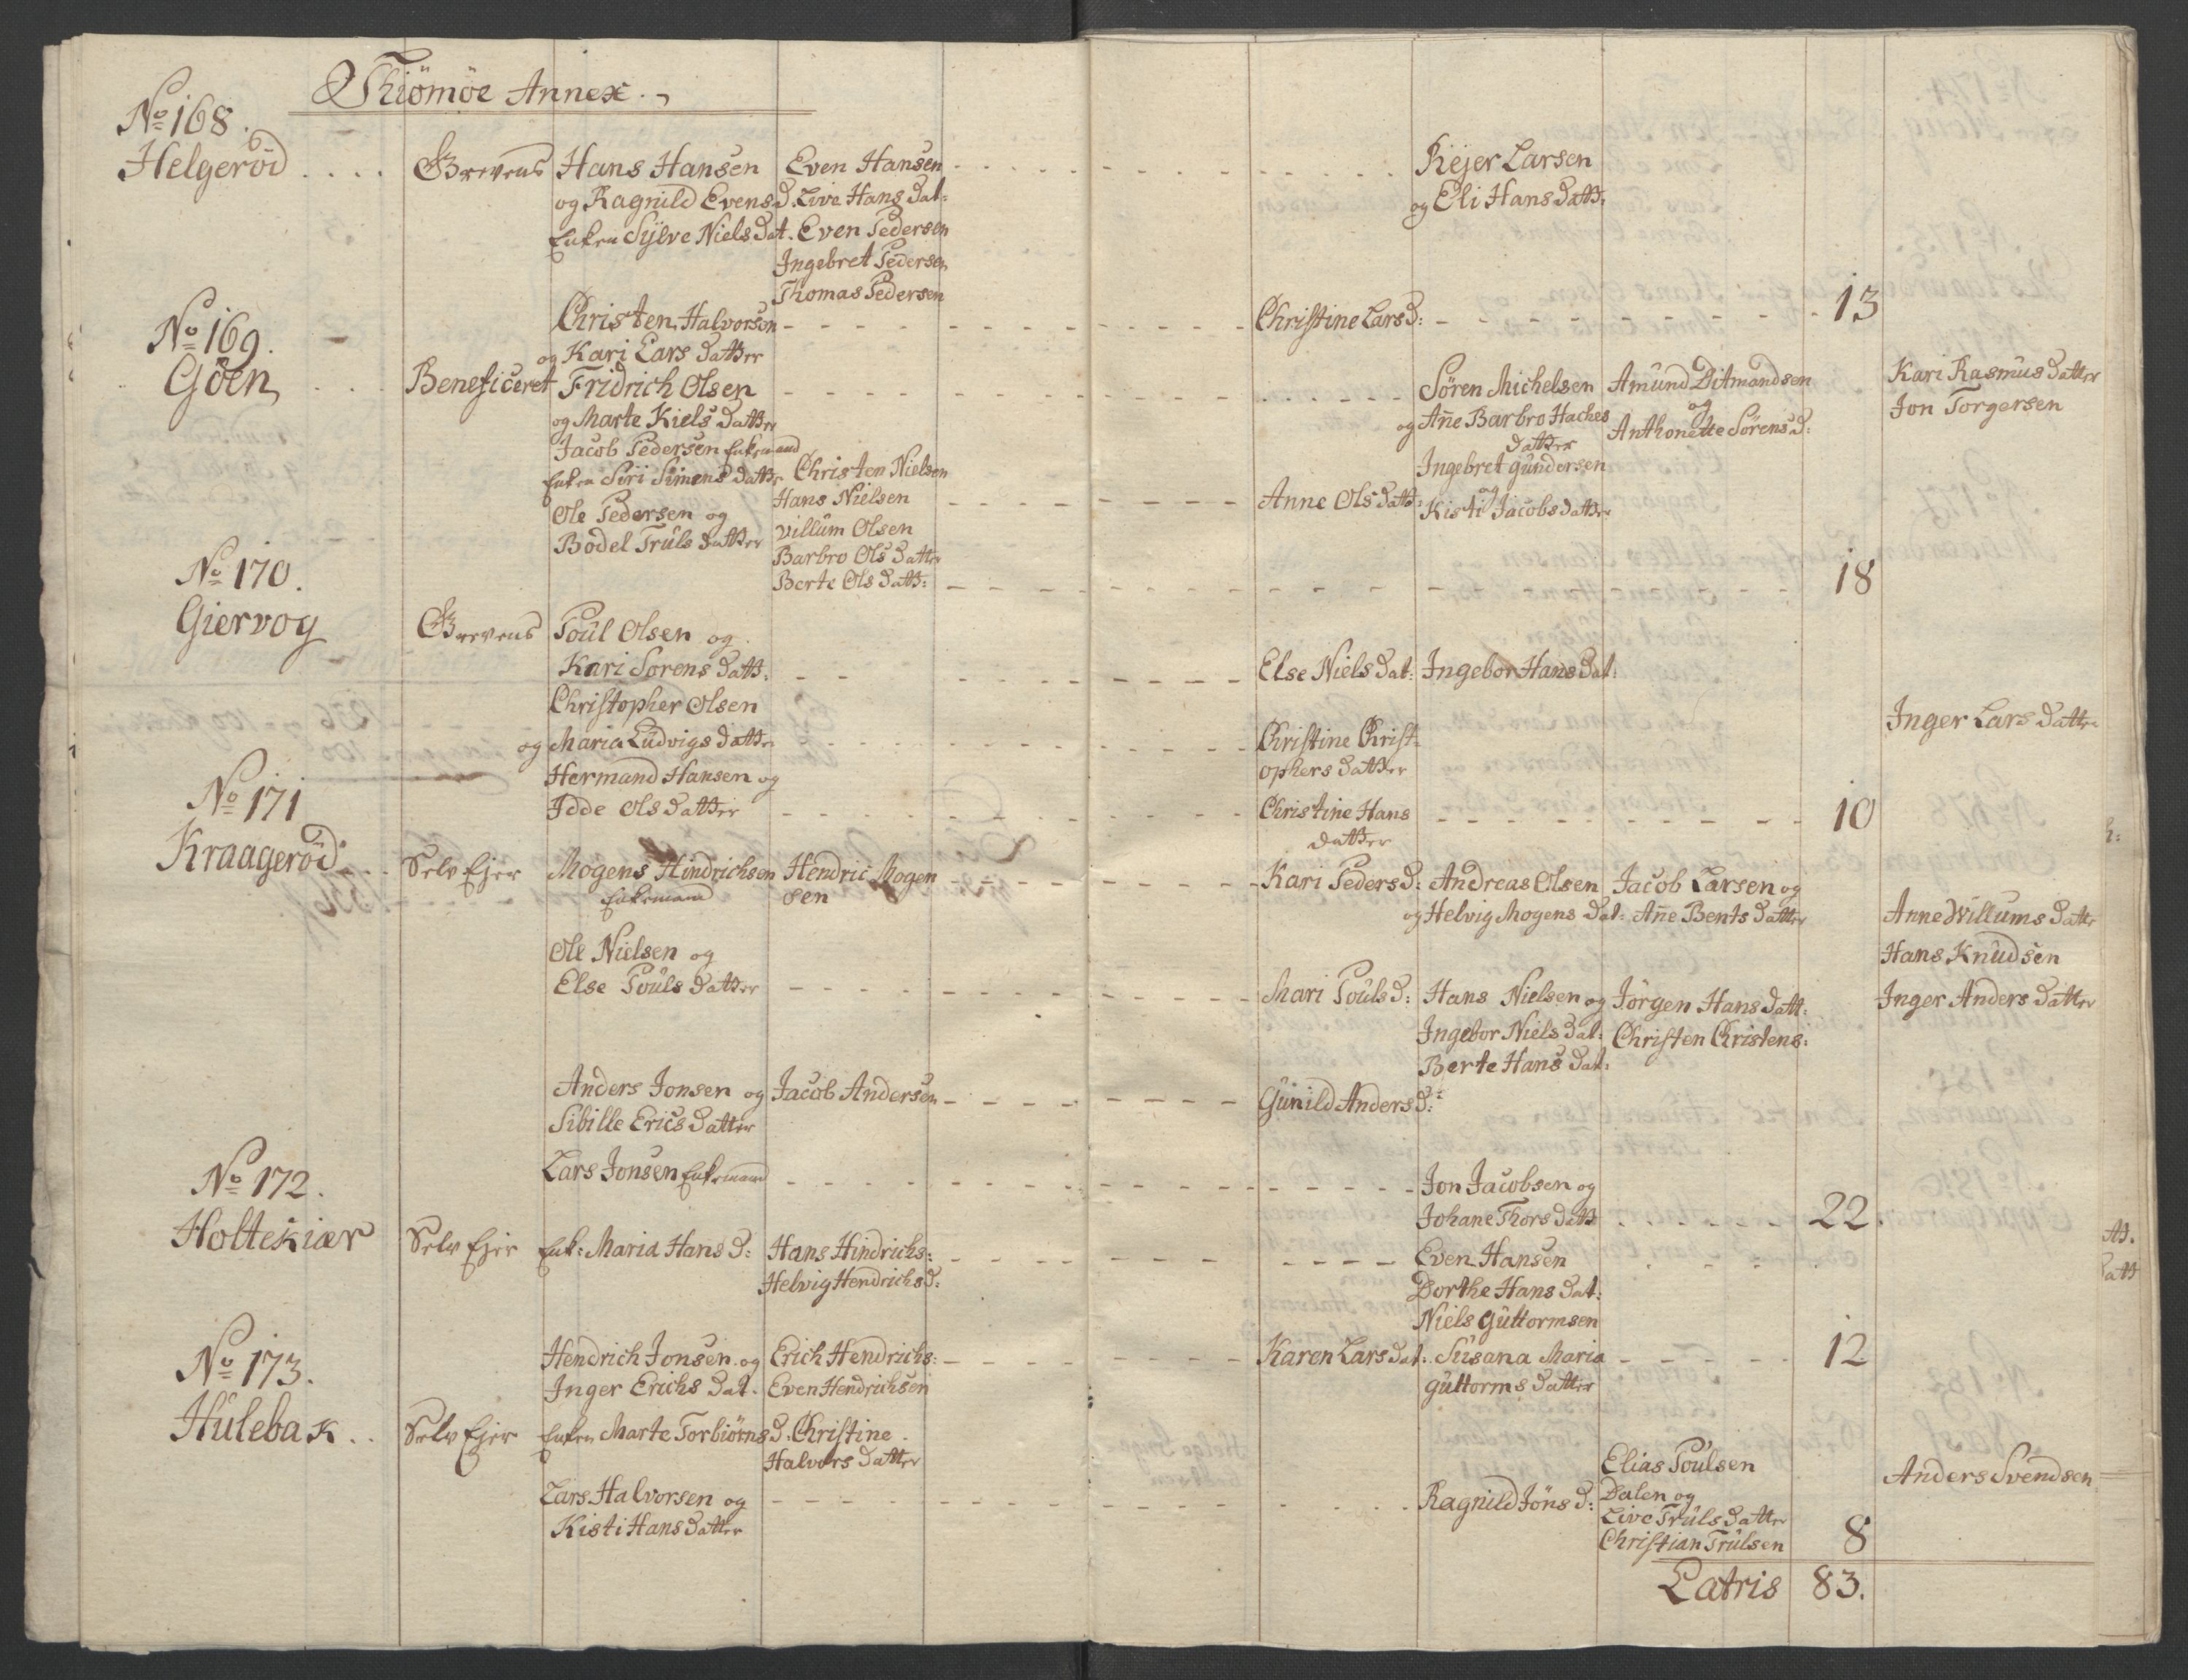 Thiömöe Annex.
No 168.
Helgeröd .... Grevens Hans Hansen Even Hansen Rejer Larsen
og Ragnild Evens d. Live Hans dat: og Eli Hans datt:
Enken Sÿlve Niels dat. Even Pedersen
Ingebret Pedersen
Thomas Pedersen
Christen Halvorsen Christine Lars d: 13
og Kari Lars datter
No 169.
Göen, ... Beneficeret Fridrich Olsen Sören Michelsen Amund Ditmandsen Kari Rasmus datter
og Marte Kiels datter og Añe Barbro Haches datter og Anthonette Sörens d: Jon Torgersen
Jacob Pedersen Enkemand
Enken Siri Simens datter Christen Nielsen Ingebret gundersen
Hans Nielsen Anne Ols datt: og Kisti Jacobs datter
Ole Pedersen og Villum Olsen
Bodel Truls datter Barbro Ols datter
Berte Ols datt: 18
No 170.
Giervog Grevens Poul Olsen og
Kari Sorens datt: Else Niels dat: Ingebor Hans dat:
Christopher Olsen
og Maria Ludvigs datter Christine Christ- Inger Lars datter
ophers datter
Hermand Hansen og
Idde Ols datter Christine Hans 10
datter
No 171
Kraageröd ... Selv Ejer Mogens Hindrichsen Hendric Mogen Kari Peders d: Andreas Olsen Jacob Larsen og
Enkemand sen og Helvig Mogens dat: Añe Bents datter Anne Willums datter
Ole Nielsen og Hans Knudsen
Else Pouls datter Mari Pouls d: Hans Nielsen og Jörgen Hans datt: Inger Anders datter
Ingebor Niels dat: Christen Christens:
Berte Hans dat:
Anders Jonsen og Jacob Andersen Gunild Anders d:
Sibille Erics datter
Lars Jonsen Enkemand Jon Jacobsen og
Johane Thors datt 22.
No 172.
Holtekiær Selv Ejer Enk: Maria Hans d: Hans Hindrichs: Even Hansen
Helvig Hendrichs d: Dorthe Hans dat:
Niels Guttormsen
Hendrich Jonsen og Erich Hendrichs: Karen Lars dat: Susana Maria 12
Inger Erichs dat. Even Hendrichsen guttorms datter
No 173.
Hulebak .. Selv Ejer Enken Marte Torbiörns d: Christine
Halvors datter
Elias Poulsen Anders Svendsen
Lars Halvorsen og Ragnild Jöns d: Dalen og
Kisti Hans datter Live Truls datter
Christian Trulsen 8
Latris 83.